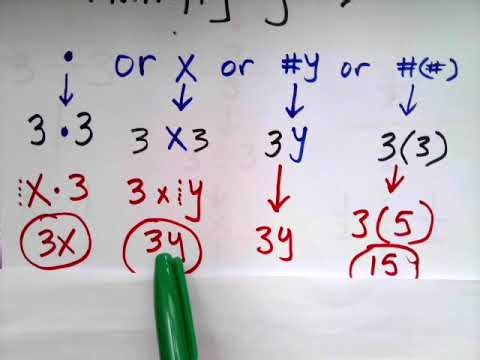 • or x or #y or #(#)
3 • 3 3 x 3 3y 3(3)
x • 3 3 x y 3y 3(5)
3x 3y 15